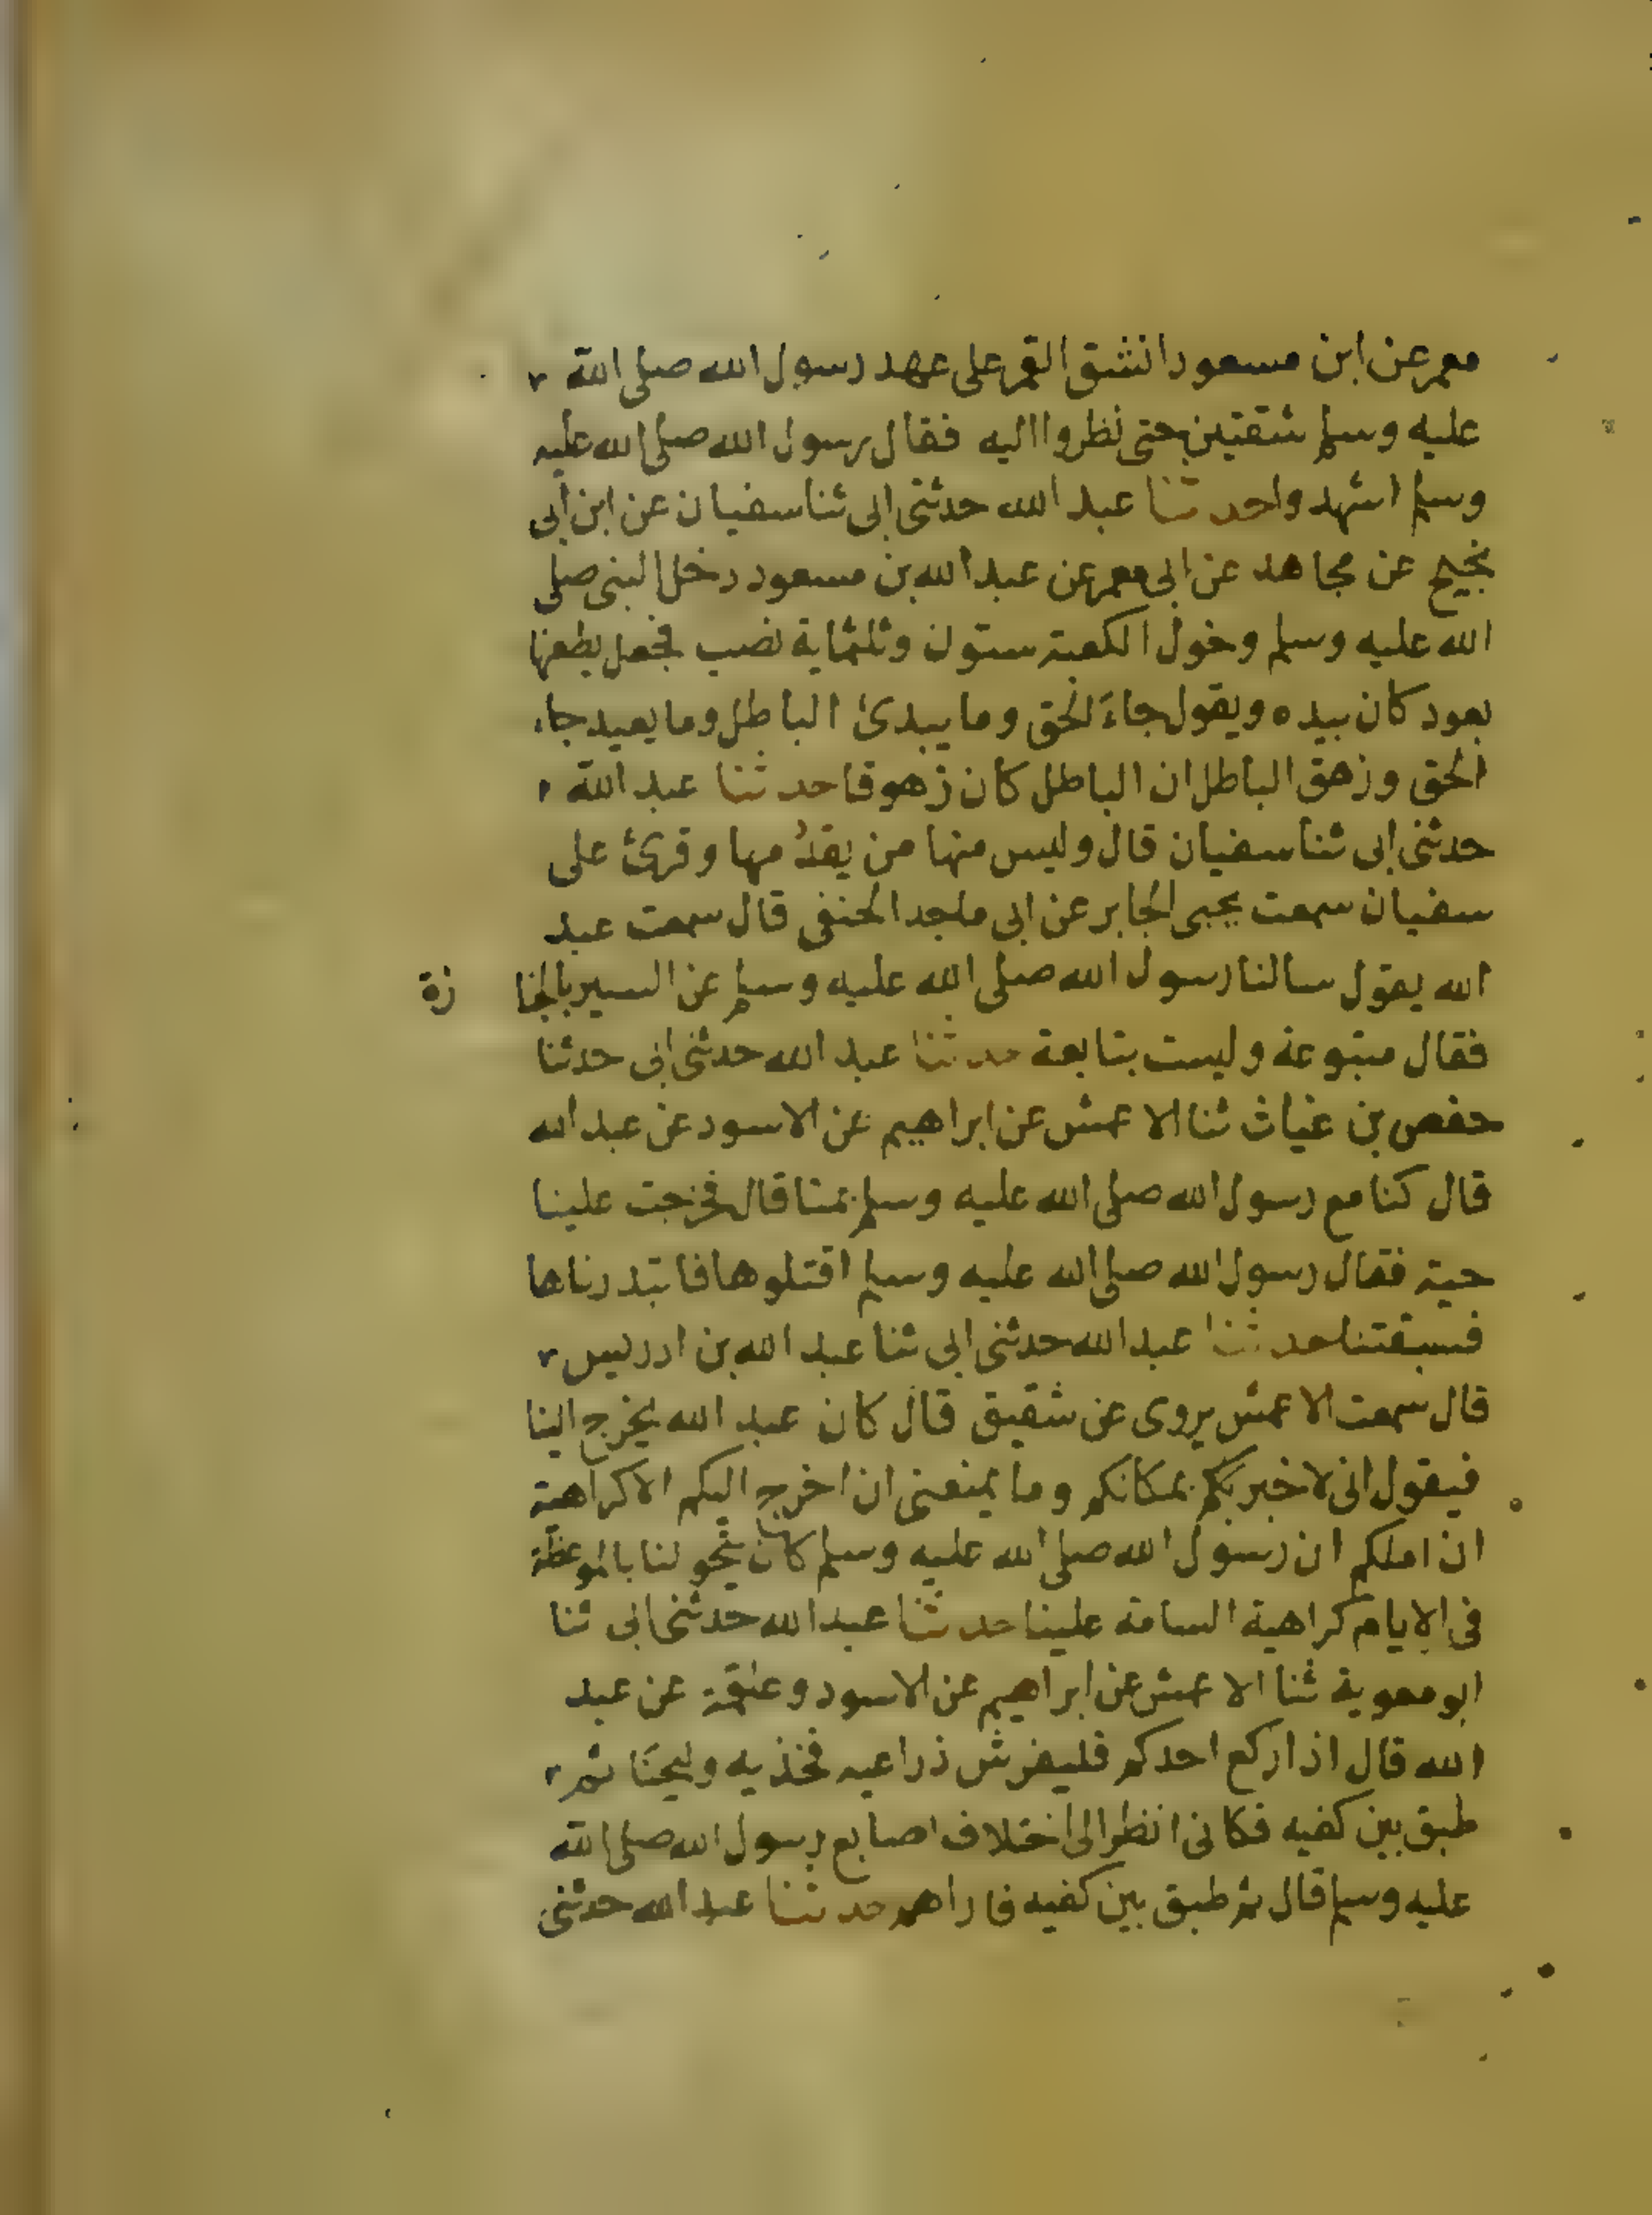 معمر عن ابن مسعود انشق القمر على عهد رسول الله صلى الله
عليه وسلم شقتين حتى نظروا اليه فقال رسول الله صلى الله عليه
وسلم اشهدوا حدثنا عبد الله حدثني ابى ثنا سفيان عن ابن أبى
نجيح عن مجاهد عن ابى معمر عن عبد الله بن مسعود دخل النبي صلى
الله عليه وسلم وحول الكعبة ستون وثلثماية نصب فجعل يطعنها
بعود كان بيده ويقول جاءَ الحق وما يبدئ الباطل وما يعيد جاء
الحق وزهق الباطل ان الباطل كان زهوقا حدثنا عبد الله
حدثني ابى ثنا سفيان قال وليس منها من يقدُمها وقرئ على
سفيان سمعت يحيى الجابر عن ابى ماجد الحنفى قال سمعت عبد
الله يقول سالنا رسول الله صلى الله عليه وسلم عن السير بالجنا زة
فقال متبوعة وليست بتابعة حدثنا عبد الله حدثني ابى حدثنا
حفص بن غياث ثنا الاعمش عن ابراهيم عن الاسود عن عبد الله
قال كنا مع رسول الله صلى الله عليه وسلم بمنا قال فخرجت علينا
حية فقال رسول الله صلى الله عليه وسلم اقتلوها فابتدرناها
فسبقتنا حدثنا عبد الله حدثني ابى ثنا عبد الله بن ادريس
قال سمعت الاعمش يروى عن شقيق قال كان عبد الله يخرج الينا
فيقول انى لاخبربكم بمكانكم وما يمنعنى ان اخرج اليكم الا كراهية
ان املكم ان رسول الله صلى الله عليه وسلم كان يتخولنا بالموعظة
فى الايام كراهية السامة علينا حدثنا عبد الله حدثني ابى ثنا
ابو معوية ثنا الاعمش عن ابراهيم عن الاسود وعلقمة عن عبد
الله قال اذا ركع احدكم فليفرش ذراعيه فخذيه وليحنا ثم
طبق بين كفيه فكانى انظر الى اختلاف اصابع رسول الله صلى الله
عليه وسلم قال ثم طبق بين كفيه فاراهم حدثنا عبد الله حدثني